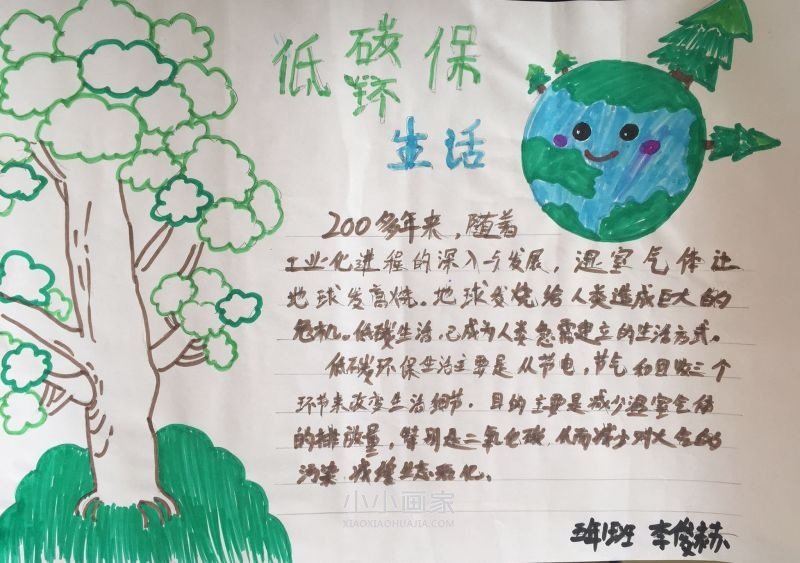 低碳环保
生活
200多年来，随着
工业化进程的深入与发展，温室气体让
地球发高烧。地球发烧给人类造成巨大的
危机。低碳生活，已成为人类急需建立的生活方式。
低碳环保生活主要是从节电，节气和回收三个
环节来改变生活细节。目的主要是减少温室气体
的排放量，特别是二氧化碳，从而减少对大气的
污染，减缓生态恶化。
小小画家
XIAOXIAOHUAJIA.COM
三年1班 李俊赫